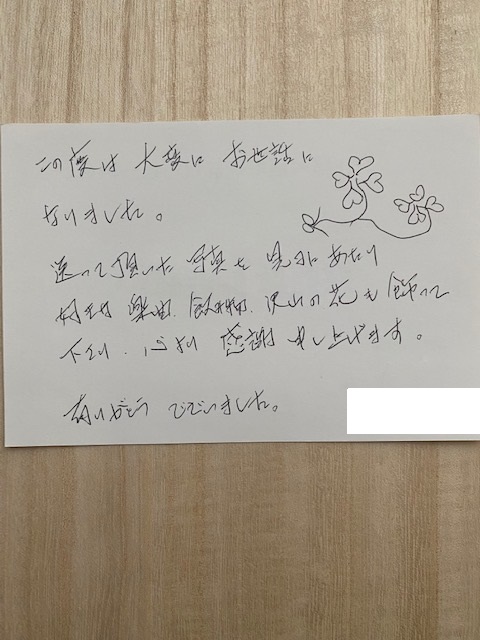 この度は 大変に お世話に
なりました。
送って頂いた 写真を 見るにあたり
好きな 楽曲、飲物、沢山の花も飾って
下さり、心より 感謝申し上げます。
ありがとうございました。